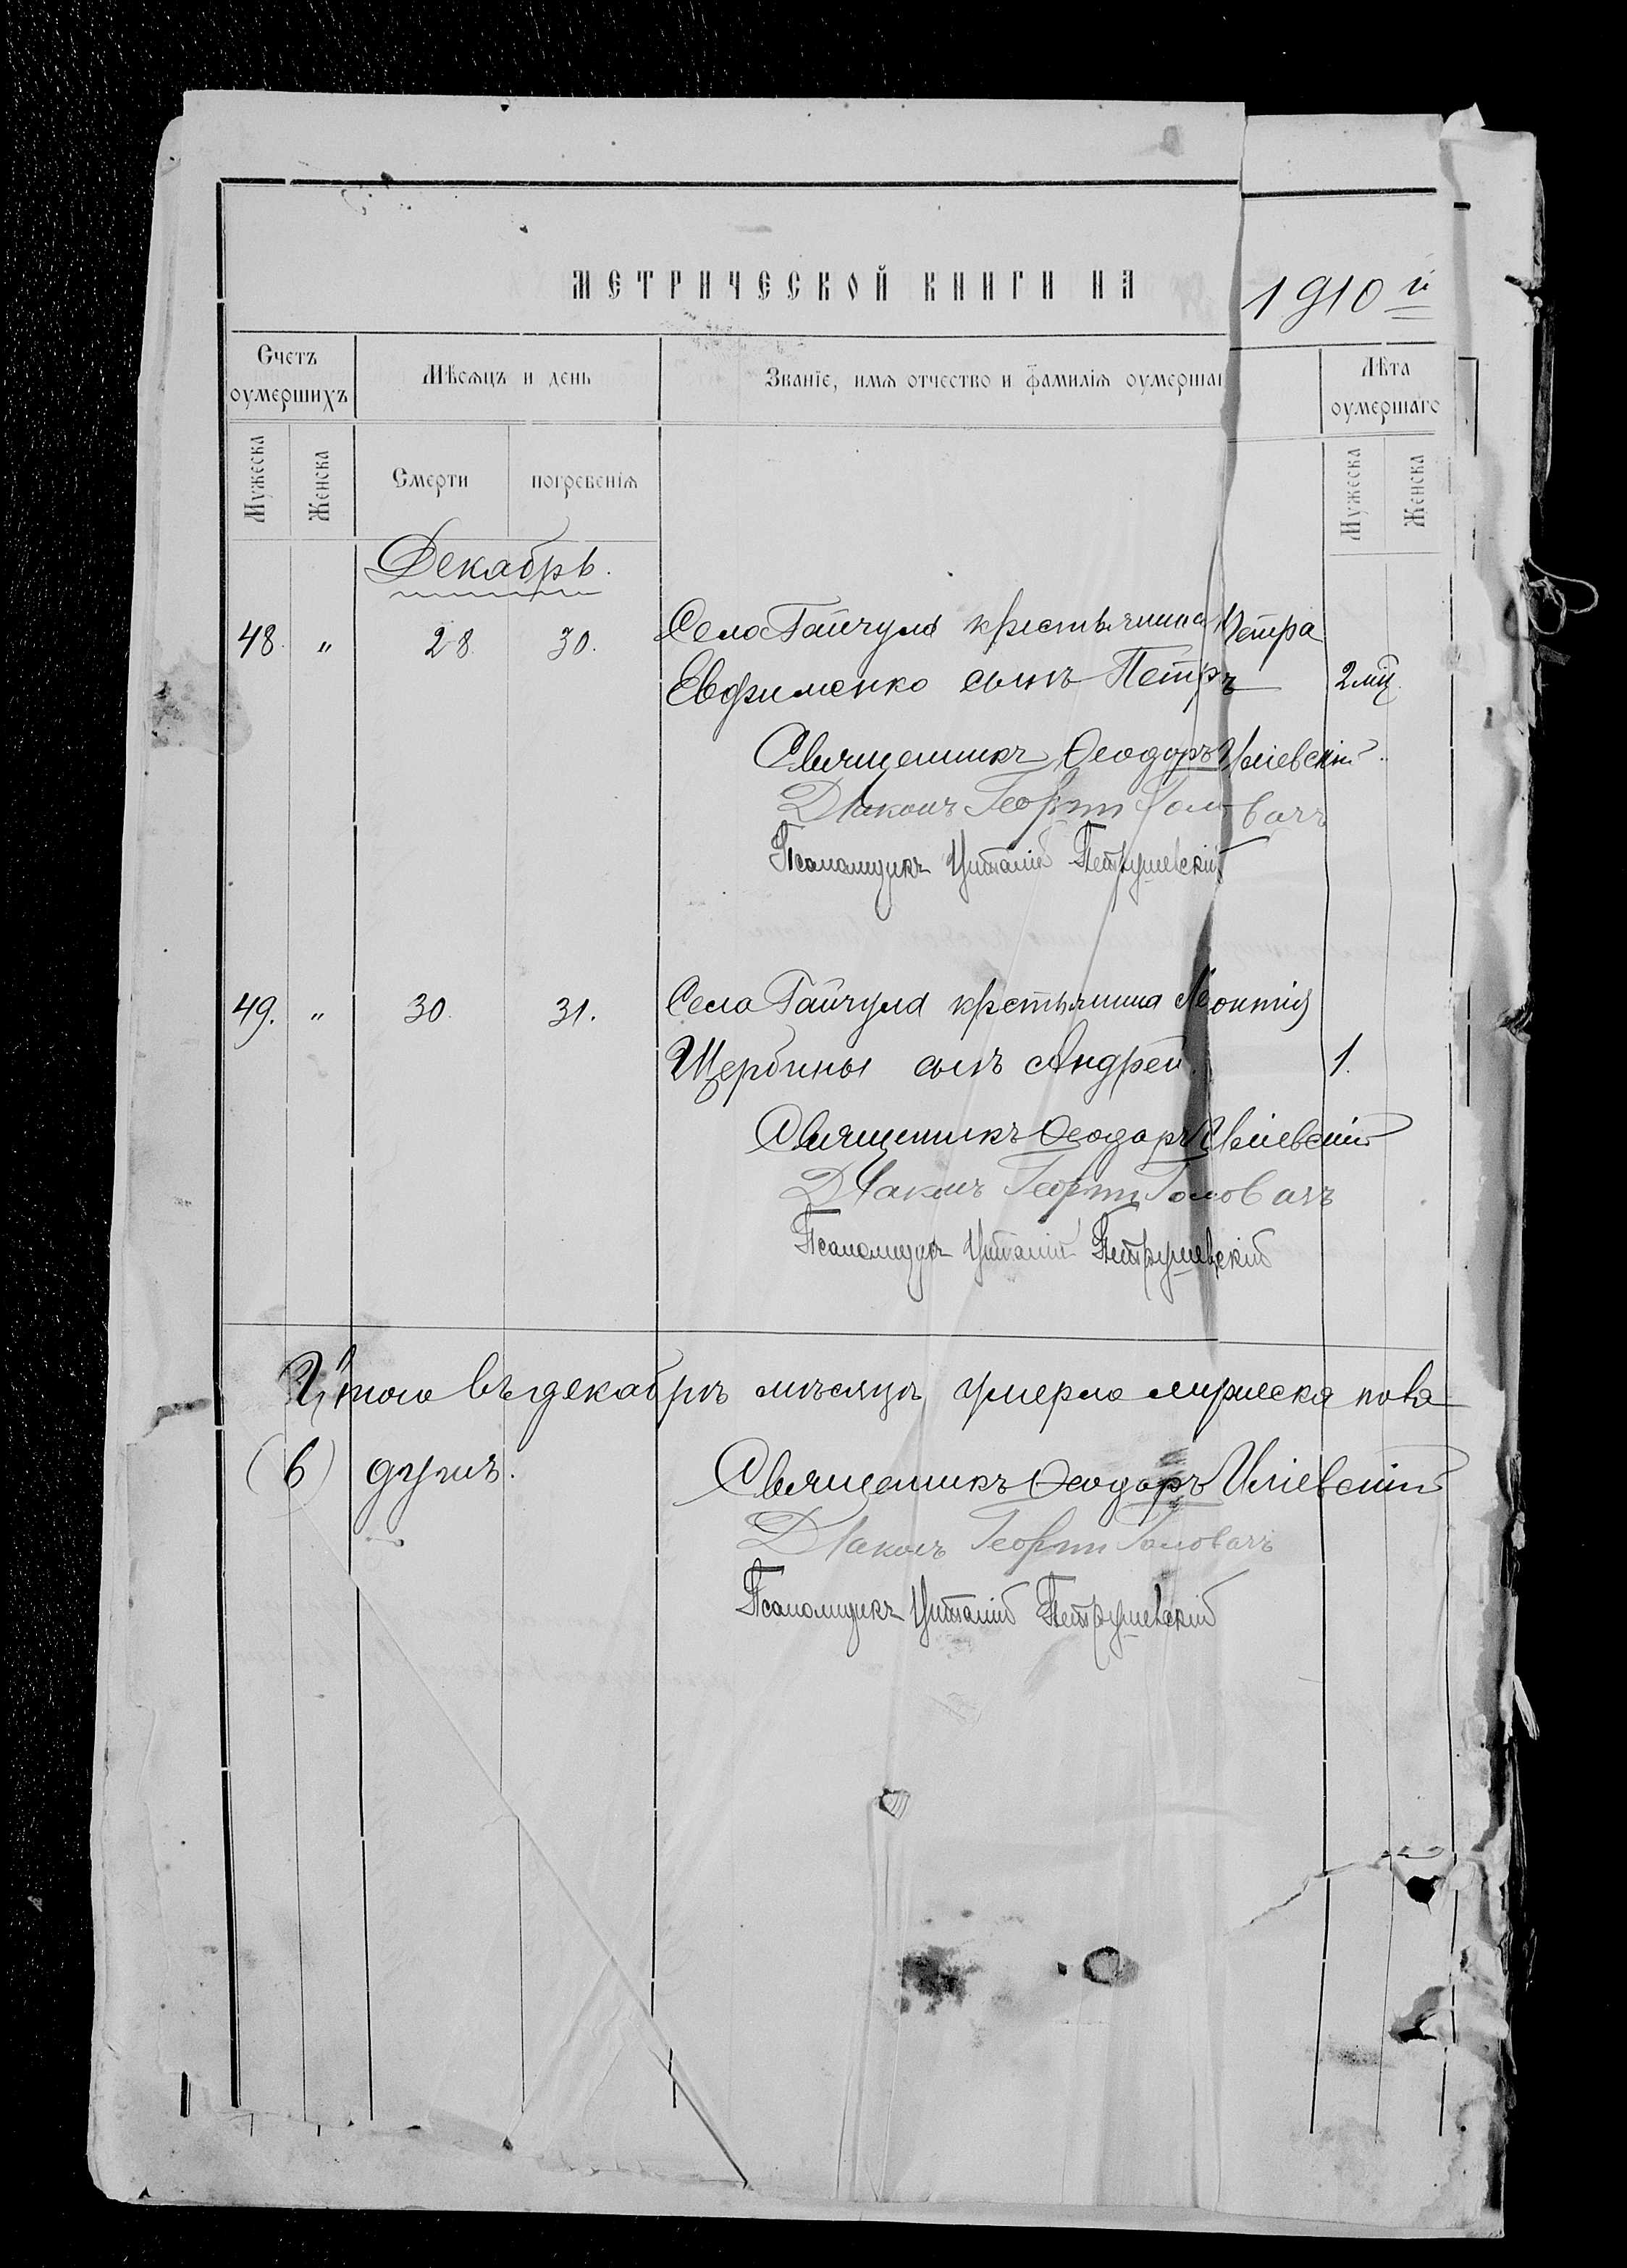 МЕТРИЧЕСКОЙ КНИГИ НА 1910й
Счетъ оумершихъ
Мѣсяцъ и день
Званїе, имя отчество и фамилїя оумершаг
Лѣта оумершаго
Мужеска
Женска
Смерти
погребенїя
Мужеска
Женска
Декабрь.
48. " 28. 30. Село Гайчула крестьянина Петра
Евфименко сынъ Петръ 2 мц.
Священникъ Ѳеодоръ Илiевскiй
Дiаконъ Георгiй Головачъ
Псаломщикъ Виталiй Петрушевскiй
49. " 30. 31. Села Гайчула крстьянина Леонтiя
Щербины сынъ Андрей. 1.
Священникъ Ѳеодоръ Илiевскiй
Дiаконъ Георгiй Головачъ
Псаломщикъ Виталiй Петрушевскiй
Итого въ декабрѣ мѣсяцѣ умерло мужеска пола
(6) душъ.
Священникъ Ѳеодоръ Илiевскiй
Дiаконъ Георгiй Головачъ
Псаломщикъ Виталiй Петрушевскiй